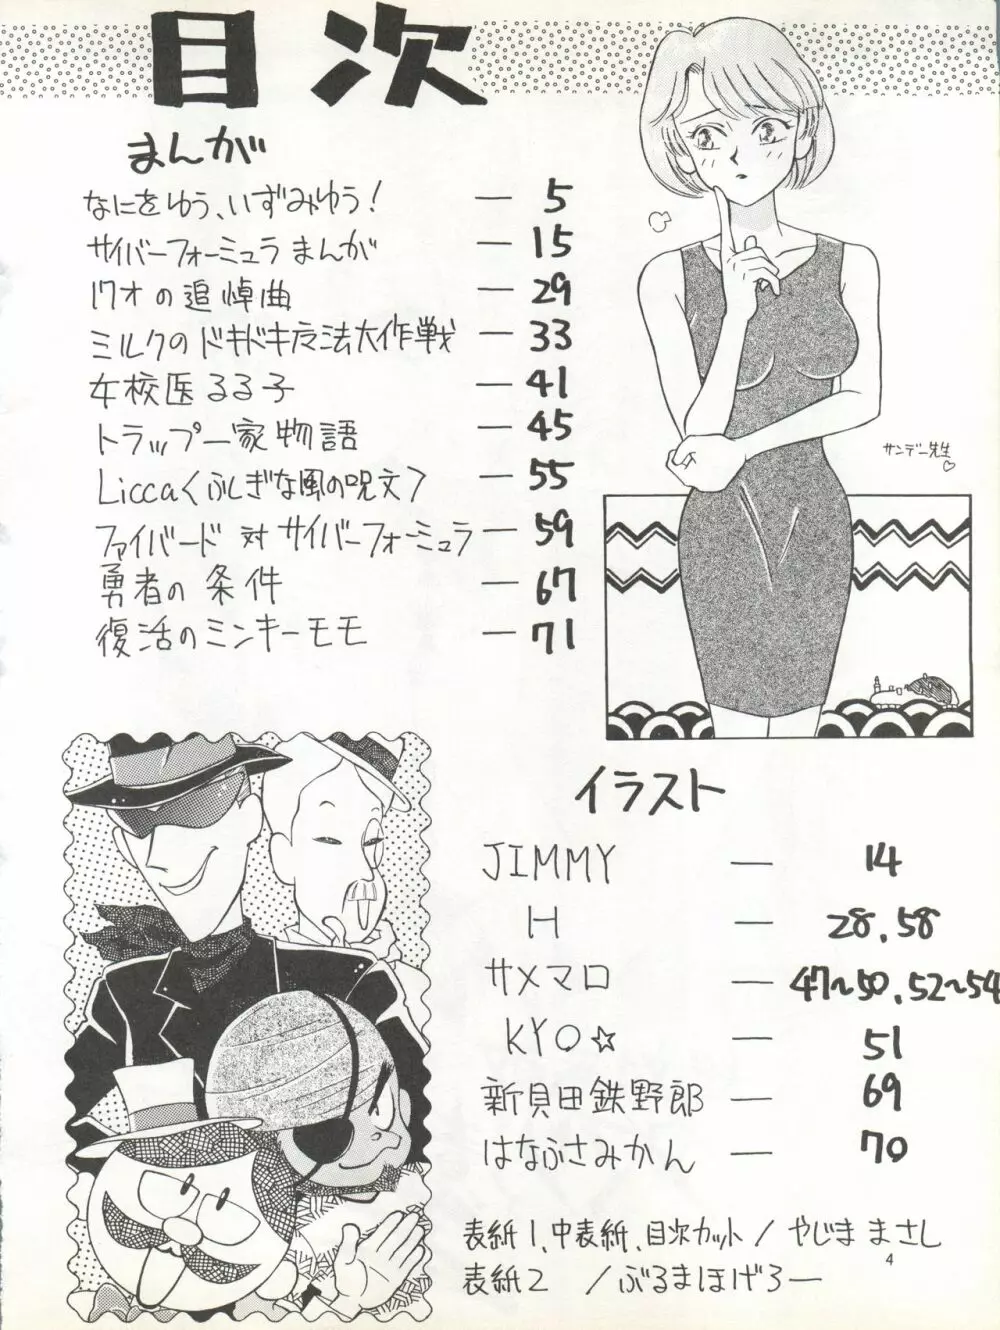 目次
まんが
なにをゆう、いずみゆう! — 5
サイバーフォーミュラ まんが — 15
ワオの追悼曲 — 29
ミルクのドキドキ魔法大作戦 — 33
女校医るる子 — 41
トラップ一家物語 — 45
Licca〈ふしぎな風の呪文〉 — 55
ファイバード 対 サイバーフォーミュラ — 59
勇者の条件 — 67
復活のミンキーモモ — 71
サンデー先生♡
イラスト
JIMMY — 14
H — 28.58
サメマロ — 47〜50.52〜54
KYO☆ — 51
新貝田鉄野郎 — 69
はなふさみかん — 70
表紙1、中表紙、目次カット / やじま まさし
表紙2 / ぶるまほげろー
4